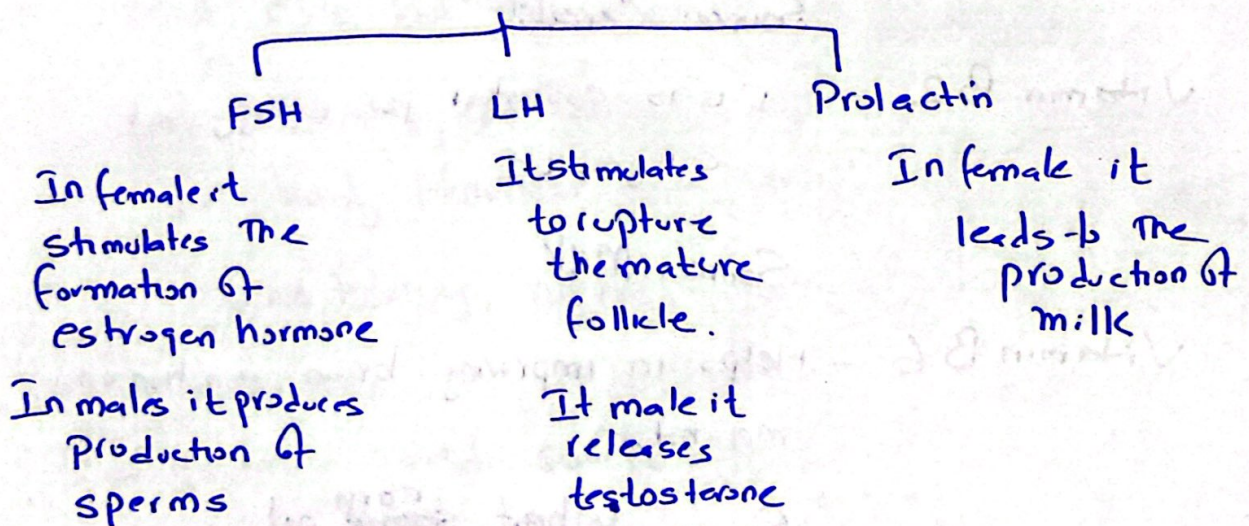 FSH
In female it
stimulates the
formation of
estrogen hormone
In males it produces
production of
sperms
LH
It stimulates
to rupture
the mature
follicle.
It male it
releases
testosterone
Prolactin
In female it
leads to the
production of
milk